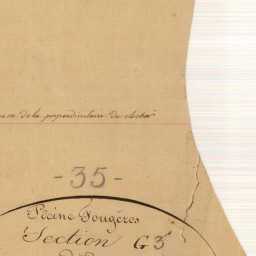 de la perpendiculaire du clocher
- 35 -
Pleine Fougères
Section G3